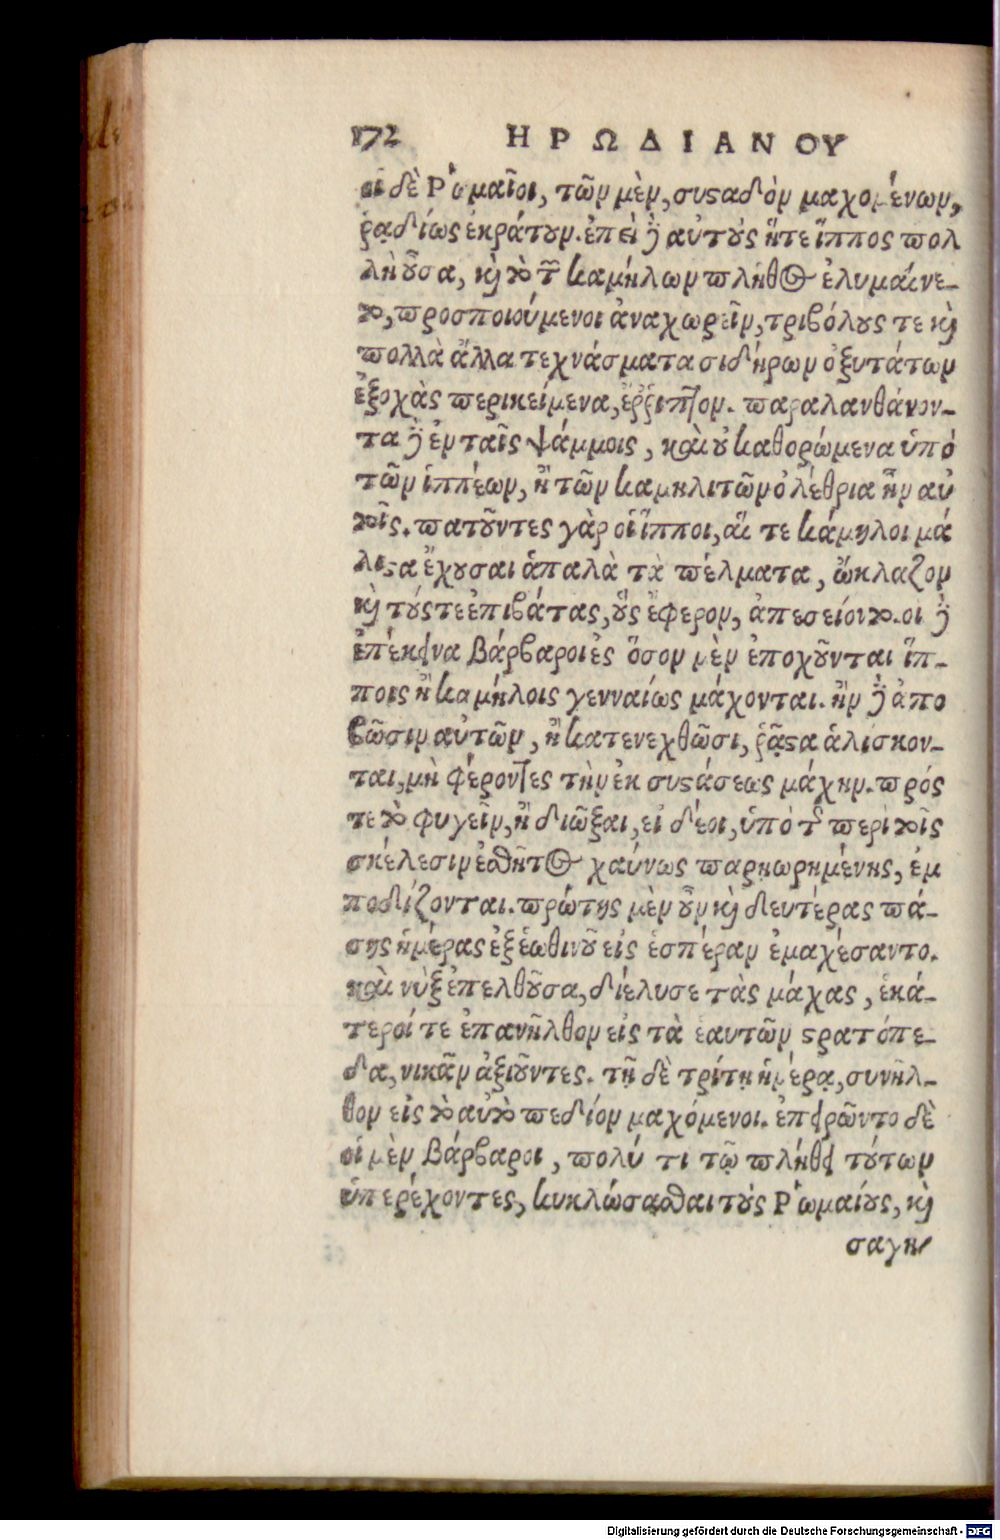 172 ΗΡΩΔΙΑΝΟΥ
οἱ δὲ Ῥωμαῖοι, τῶν μὲν, συϛαδὸν μαχομένων,
ῥᾳδίως ἐκράτουν. ἐπεὶ δὲ αὐτοὺς ἥτε ἵππος πολ
λὴ οὖσα, καὶ τὸ τῶν καμήλων πλῆθος ἐλυμαίνε-
το, προσποιούμενοι ἀναχωρεῖν, τριβόλους τε καὶ
πολλὰ ἄλλα τεχνάσματα σιδήρων ὀξυτάτων
ἐξοχὰς περικείμενα, ἐῤῥίπτον. παραλανθάνον-
τα δὲ ἐν ταῖς ψάμμοις, καὶ οὐ καθορώμενα ὑπό
τῶν ἱππέων, ἢ τῶν καμηλιτῶν ὀλέθρια ἦν αὐ
τοῖς. πατοῦντες γὰρ οἱ ἵπποι, αἵ τε κάμηλοι μά
λιϛα ἔχουσαι ἁπαλὰ τὰ πέλματα, ὤκλαζον
καὶ τούς τε ἐπιβάτας, οὓς ἔφερον, ἀπεσείοντο. οἱ δὲ
ἐπέκεινα βάρβαροι ἐς ὅσον μὲν ἐποχοῦνται ἵπ-
ποις ἢ καμήλοις γενναίως μάχονται. ἢν δὲ ἀπο
βῶσιν αὐτῶν, ἢ κατενεχθῶσι, ῥᾷϛα ἁλίσκον-
ται, μὴ φέροντες τὴν ἐκ συϛάσεως μάχην. πρός
τε τὸ φυγεῖν, ἢ διῶξαι, εἰ δέοι, ὑπὸ τῆς περὶ τοῖς
σκέλεσιν ἐσθῆτος χαύνως παρῃωρημένης, ἐμ
ποδίζονται. πρώτης μὲν οὖν καὶ δευτέρας πά-
σης ἡμέρας ἐξ ἑωθινοῦ εἰς ἑσπέραν ἐμαχέσαντο.
καὶ νὺξ ἐπελθοῦσα, διέλυσε τὰς μάχας, ἑκά-
τεροί τε ἐπανῆλθον εἰς τὰ ἑαυτῶν ϛρατόπε-
δα, νικᾶν ἀξιοῦντες. τῇ δὲ τρίτῃ ἡμέρᾳ, συνῆλ-
θον εἰς τὸ αὐτὸ πεδίον μαχόμενοι. ἐπειρῶντο δὲ
οἱ μὲν βάρβαροι, πολύ τι τῷ πλήθει τούτων
ὑπερέχοντες, κυκλώσασθαι τοὺς Ῥωμαίους, καὶ
σαγη
Digitalisierung gefördert durch die Deutsche Forschungsgemeinschaft - DFG